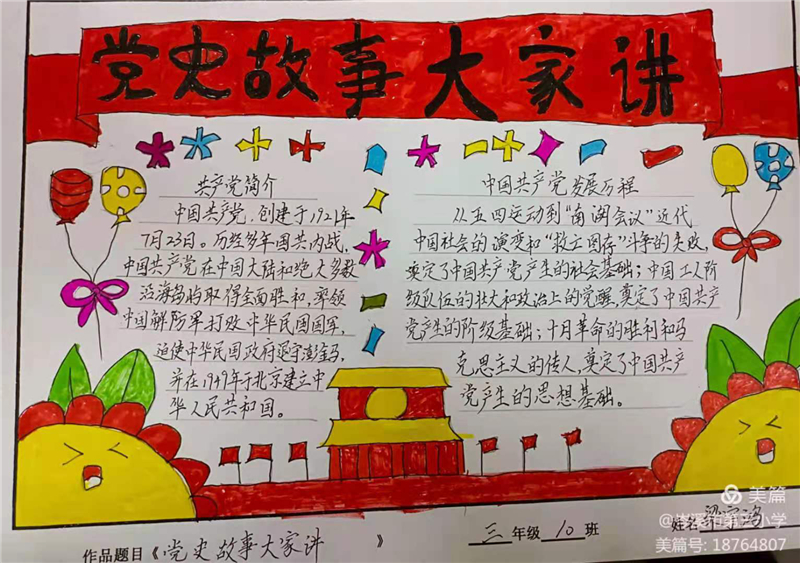 党史故事大家讲
共产党简介
中国共产党,创建于1921年
7月23日。历经多年国共内战,
中国共产党在中国大陆和绝大多数
沿海岛屿取得全面胜利,率领
中国解放军打败中华民国国军,
迫使中华民国政府退守澎金马,
并在1949年于北京建立中
华人民共和国。
中国共产党发展历程
从五四运动到“南湖会议”近代
中国社会的演变和“救亡图存”斗争的失败,
奠定了中国共产党产生的社会基础;中国工人阶
级队伍的壮大和政治上的觉醒,奠定了中国共产
党产生的阶级基础;十月革命的胜利和马
克思主义的传人,奠定了中国共产
党产生的思想基础。
作品题目《党史故事大家讲》
三年级10班
姓名
美篇
小学
美篇号: 18764807